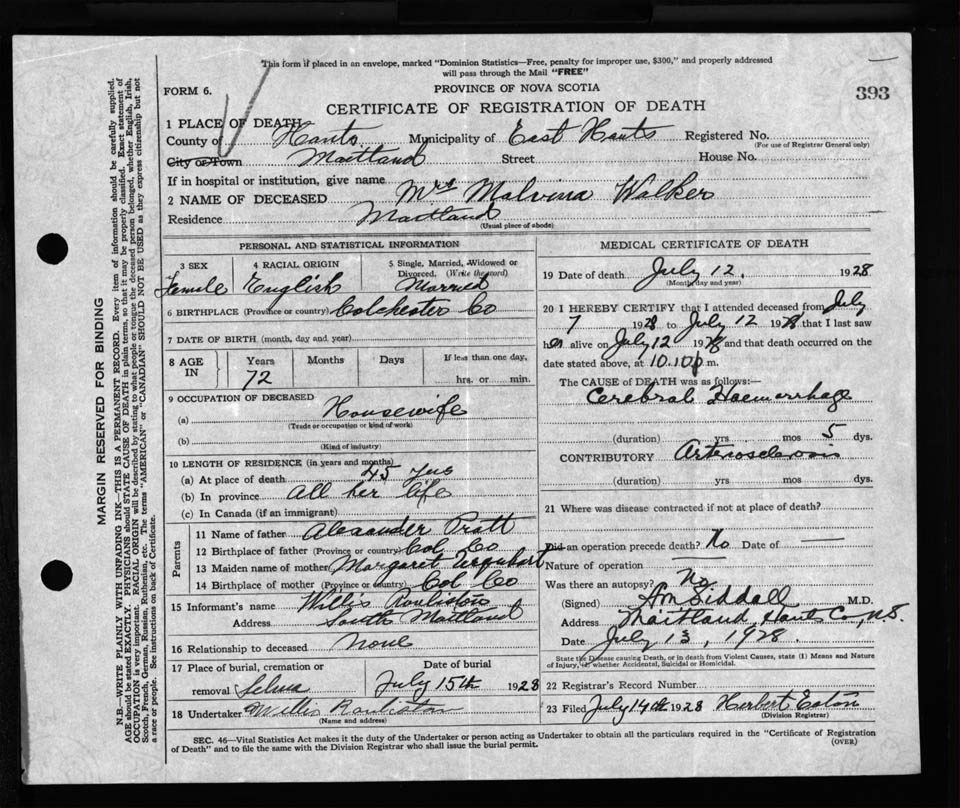 This form if placed in an envelope, marked "Dominion Statistics—Free, penalty for improper use, $300," and properly addressed
will pass through the Mail "FREE"
FORM 6.
PROVINCE OF NOVA SCOTIA
393
CERTIFICATE OF REGISTRATION OF DEATH
1 PLACE OF DEATH
County of Hants Municipality of East Hants Registered No.
(For use of Registrar General only)
City or Town Maitland Street House No.
If in hospital or institution, give name
2 NAME OF DECEASED Mrs Malvina Walker
Residence Maitland
(Usual place of abode)
PERSONAL AND STATISTICAL INFORMATION
3 SEX Female
4 RACIAL ORIGIN English
5 Single, Married, Widowed or
Divorced. (Write the word)
Married
6 BIRTHPLACE (Province or country) Colchester Co
7 DATE OF BIRTH (month, day and year)
8 AGE IN Years Months Days If less than one day,
72 hrs. or min.
9 OCCUPATION OF DECEASED
(a) Housewife
(Trade or occupation or kind of work)
(b)
(Kind of industry)
10 LENGTH OF RESIDENCE (in years and months)
(a) At place of death 45 yrs
(b) In province All her life
(c) In Canada (if an immigrant)
Parents
11 Name of father Alexander Pratt
12 Birthplace of father (Province or country) Col. Co
13 Maiden name of mother Margaret Urquhart
14 Birthplace of mother (Province or country) Col Co
15 Informant's name Willis Roulston
Address South Maitland
16 Relationship to deceased None
17 Place of burial, cremation or Date of burial
removal Selma July 15th 1928
18 Undertaker Willis Roulston
(Name and address)
MEDICAL CERTIFICATE OF DEATH
19 Date of death July 12, 1928
(Month, day and year)
20 I HEREBY CERTIFY that I attended deceased from July
7 1928 to July 12 1928 that I last saw
her alive on July 12 1928 and that death occurred on the
date stated above, at 10.10 p.m.
The CAUSE of DEATH was as follows:—
Cerebral Haemorrhage
(duration) yrs mos 5 dys.
CONTRIBUTORY Arteriosclerosis
(duration) yrs mos dys.
21 Where was disease contracted if not at place of death?
Did an operation precede death? No Date of —
Nature of operation —
Was there an autopsy? No
(Signed) Siddall M.D.
Address Maitland, Hants Co., N.S.
Date July 13, 1928.
State the Disease causing Death, or in death from Violent Causes, state (1) Means and Nature
of Injury, (2) whether Accidental, Suicidal or Homicidal.
22 Registrar's Record Number
23 Filed July 14th 1928 Herbert Eaton
(Division Registrar)
SEC. 46—Vital Statistics Act makes it the duty of the Undertaker or person acting as Undertaker to obtain all the particulars required in the "Certificate of Registration
of Death" and to file the same with the Division Registrar who shall issue the burial permit.
(OVER)
MARGIN RESERVED FOR BINDING
N.B.—WRITE PLAINLY WITH UNFADING INK—THIS IS A PERMANENT RECORD. Every item of information should be carefully supplied.
AGE should be stated EXACTLY. PHYSICIANS should STATE CAUSE OF DEATH in plain terms, so that it may be properly classified. Exact statement of
OCCUPATION is very important. RACIAL ORIGIN will be described by stating to what people or tongue the deceased person belonged, whether English, Irish,
Scotch, French, German, Russian, Ruthenian, etc. The terms "AMERICAN" or "CANADIAN" SHOULD NOT BE USED as they express citizenship but not
a race or people. See instructions on back of Certificate.